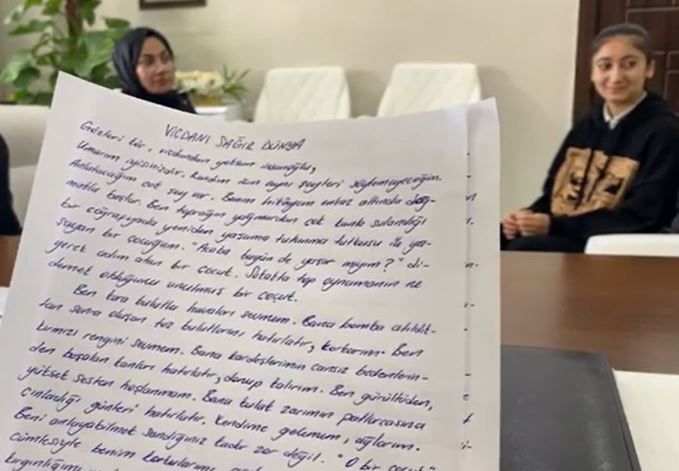 VİCDANI SAĞIR DÜNYA
Gözleri kör, vicdandan yoksun insanoğlu,
Umarım iyisinizdir. Kendim için aynı şeyleri söylemeyeceğim.
Anlatacağım çok şey var. Benim hikâyem enkaz altında doğ-
makla başlar. Ben toprağın yağmurdan çok kanla sulandığı
bir coğrafyada yeniden yaşama tutunma tutkusu ile ya-
şayan bir çocuğum. "Acaba bugün de yaşar mıyım?" di-
yerek adım atan bir çocuk. Sokakta top oynamanın ne
demek olduğunu unutmuş bir çocuk.
Ben kara bulutlu havaları sevmem. Bana bomba atıldık-
tan sonra oluşan toz bulutlarını hatırlatır, korkarım. Ben
kırmızı rengini sevmem. Bana kardeşlerimin cansız bedenlerin-
den boşalan kanları hatırlatır, donup kalırım. Ben gürültüden,
yüksek sesten hoşlanmam. Bana kulak zarımın patlarcasına
çınladığı günleri hatırlatır. Kendime gelemem, ağlarım.
Beni anlayabilmek sandığınız kadar zor değil. "O bir çocuk"
cümlesiyle benim korkularımı
kırgınlığımı